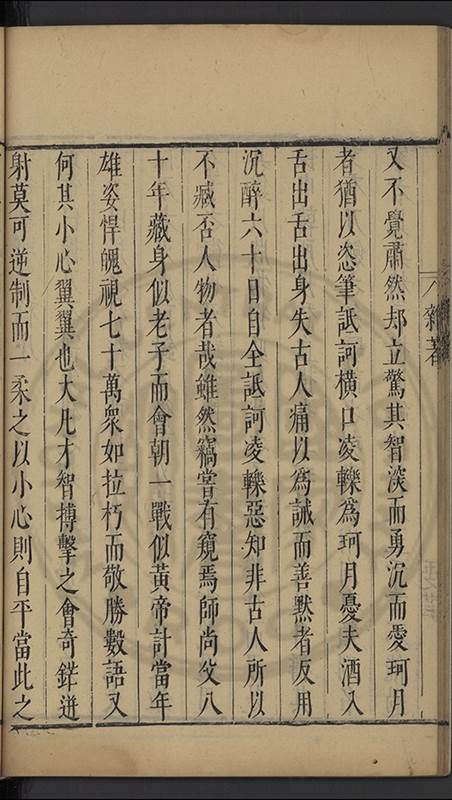 又不覺肅然却立驚其智深而勇沉而愛珂月
者猶以恣筆詆訶橫口凌轢爲珂月憂夫酒入
舌出舌出身失古人痛以爲誡而善默者反用
沉醉六十日自全詆訶凌轢惡知非古人所以
不臧否人物者哉雖然竊嘗有窺焉師尚父八
十年藏身似老子而會朝一戰似黃帝計當年
雄姿悍魄視七十萬衆如拉朽而敬勝數語又
何其小心翼翼也大凡才智搏擊之會奇鋒迸
射莫可逆制而一柔之以小心則自平當此之
雜著